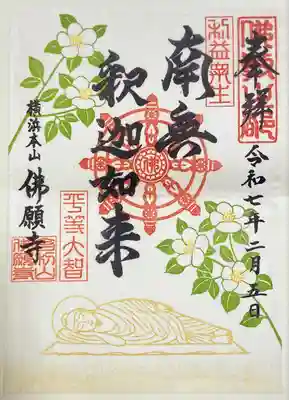 奉拝
令和七年二月五日
利益無生
南無
釈迦如来
佛
平等大智
横浜本山
佛願寺